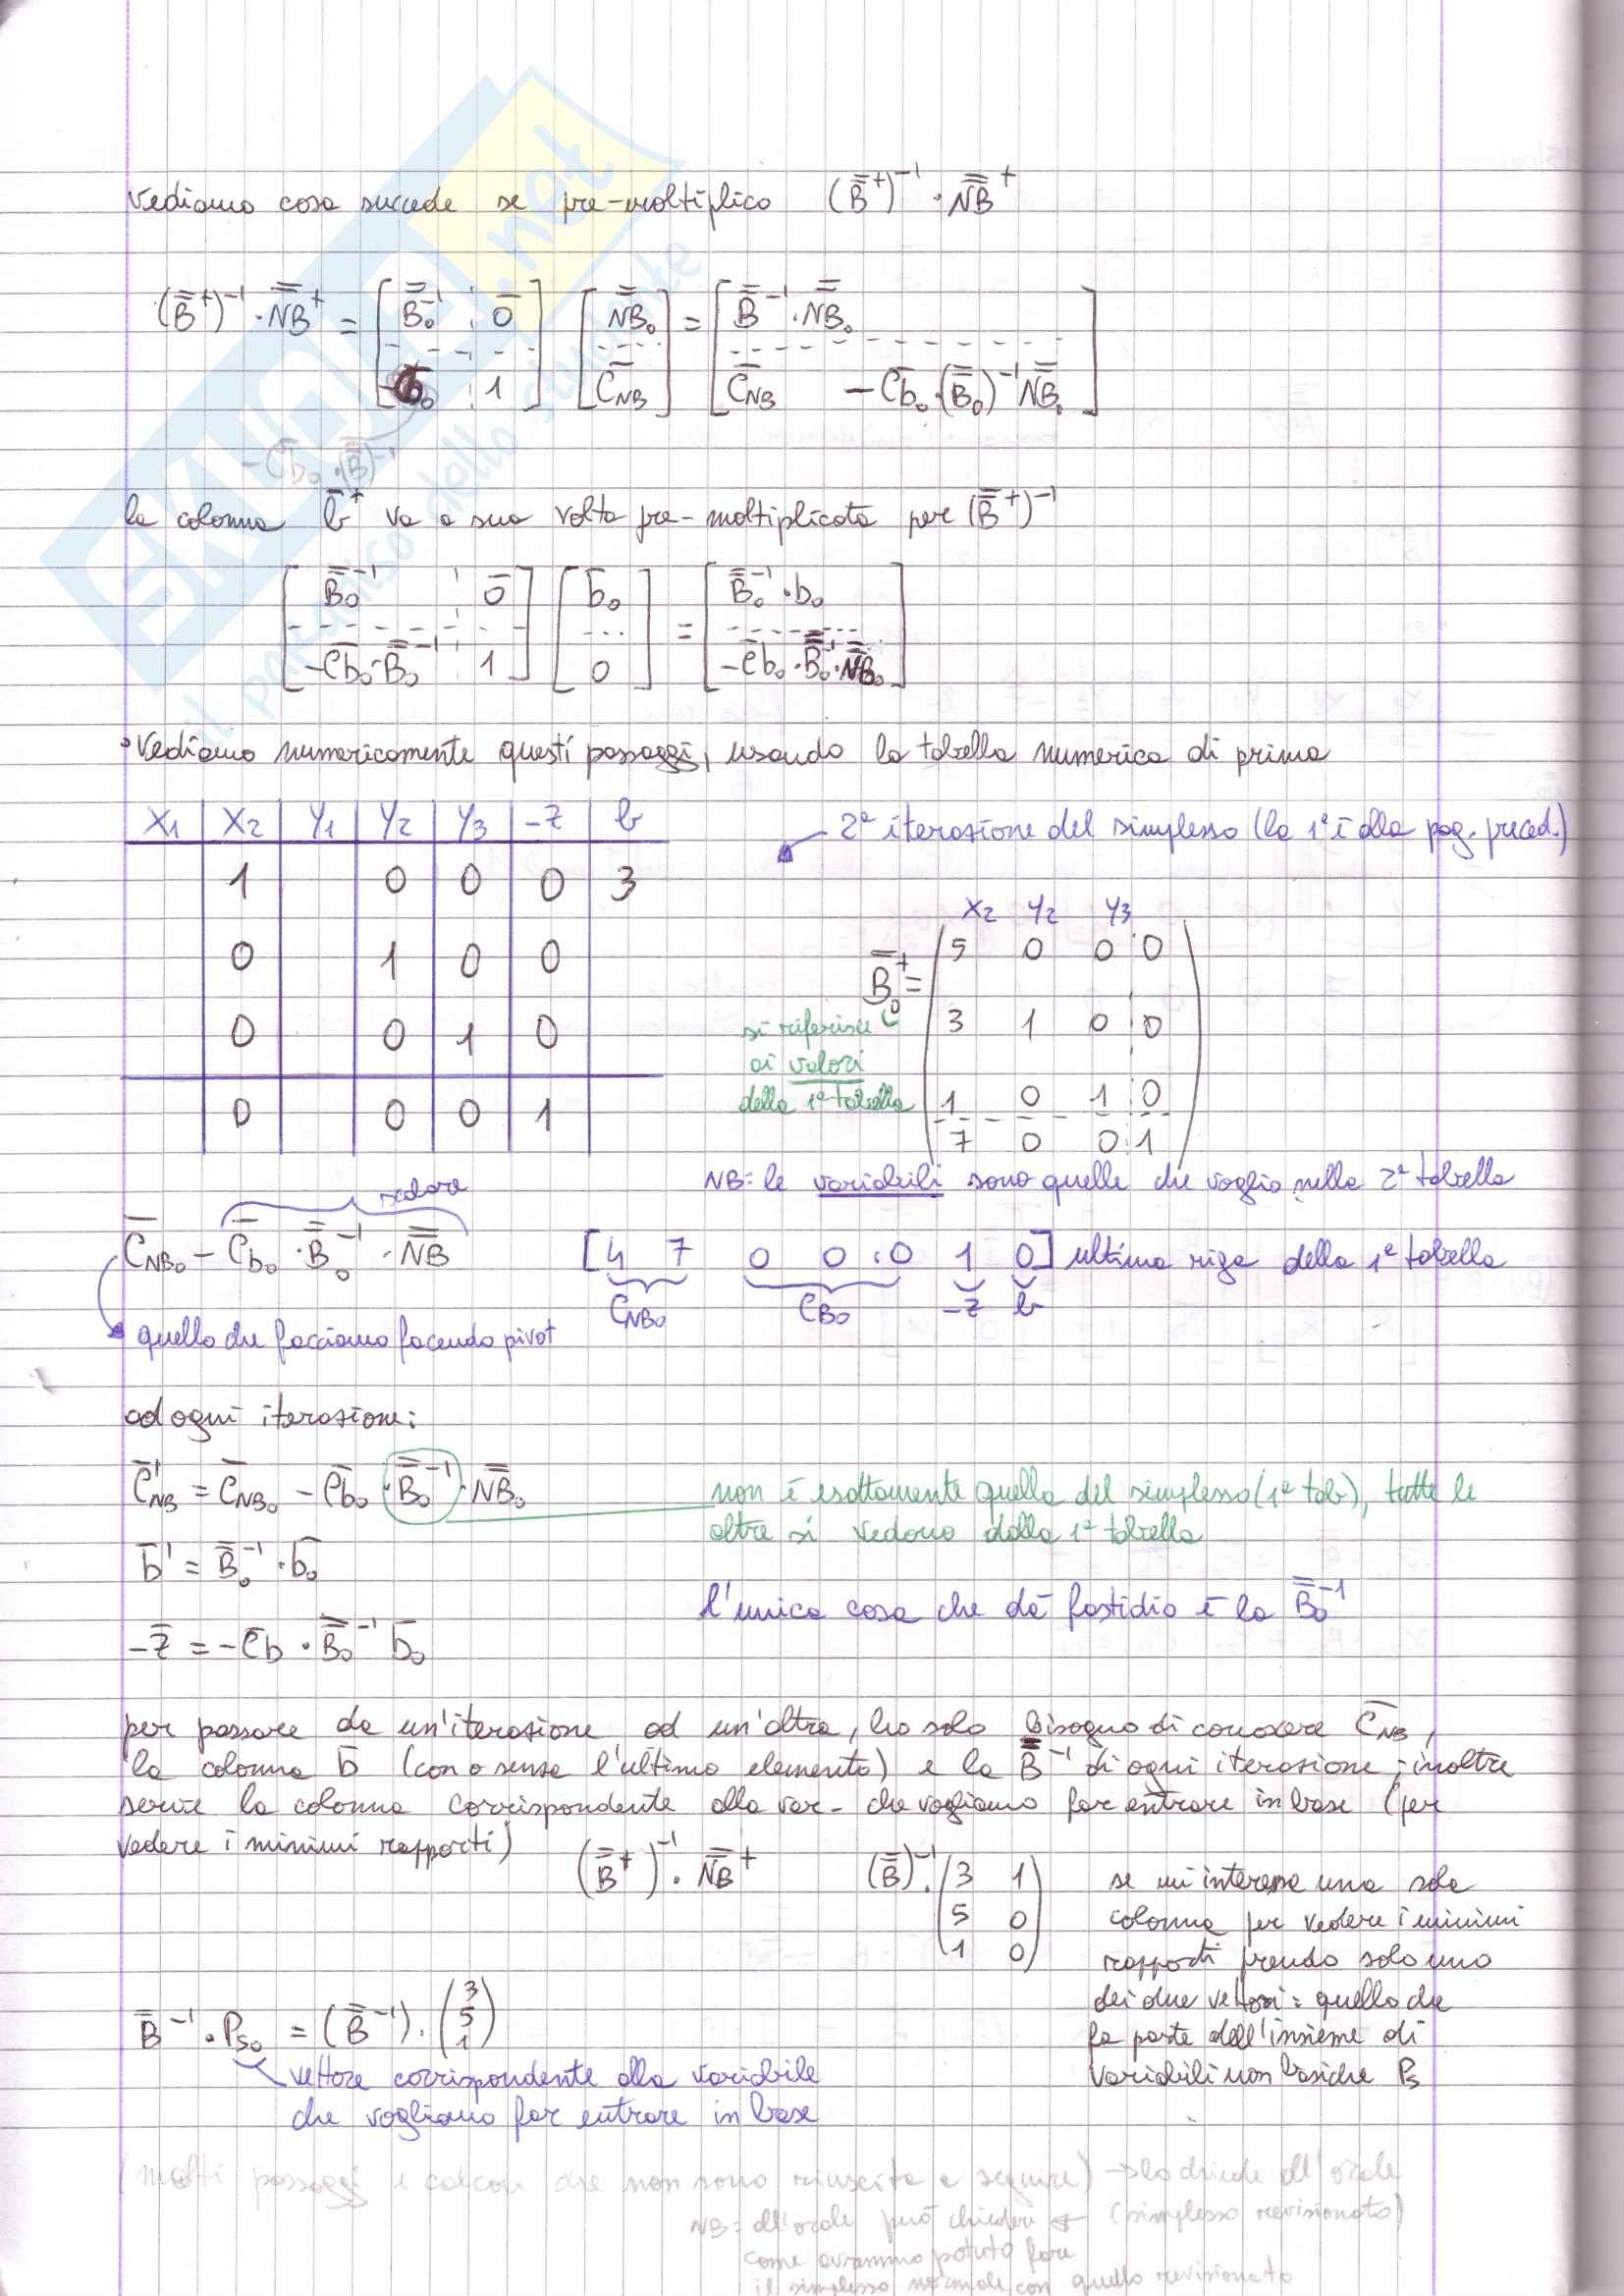 Vediamo cosa succede se pre-moltiplico (B̿⁺)⁻¹ · N̿B̿⁺
(B̿⁺)⁻¹ · N̿B̿⁺ = [B̿₀⁻¹ ¦ 0̄ / ‑C̄b₀ ¦ 1] [N̿B̿₀ / C̄NB] = [B̿⁻¹ · N̿B̿₀ / C̄NB - C̄b₀ · (B̿₀)⁻¹ N̿B̿₀]
-C̄b₀ · (B̿)⁻¹
la colonna b̄⁺ va a sua volta pre-moltiplicata per (B̿⁺)⁻¹
[B̿₀⁻¹ ¦ 0̄ / -C̄b₀ · B̿₀⁻¹ ¦ 1] [b̄₀ / 0] = [B̿₀⁻¹ · b₀ / -C̄b₀ · B̿₀⁻¹ · N̿B̿₀]
• Vediamo numericamente questi passaggi, usando la tabella numerica di prima
X₁ | X₂ | Y₁ | Y₂ | Y₃ | -Z | b
2ª iterazione del simplesso (la 1ª è alla pag. preced.)
1 0 0 0 3
0 1 0 0
0 0 1 0
0 0 0 1
X₂ Y₂ Y₃
B̿₀⁺ =
5 0 0 0
3 1 0 0
1 0 1 0
7 0 0 1
si riferisce
ai valori
della 1ª tabella
NB: le variabili sono quelle che voglio nella 2ª tabella
scalare
C̄NB₀ - C̄b₀ · B̿₀⁻¹ · N̿B̿
[4 7 0 0 0 1 0] ultima riga della 1ª tabella
CNB₀ CB₀ -Z b
quello che facciamo facendo pivot
ad ogni iterazione:
C̄'NB = C̄NB₀ - C̄b₀ · B̿₀⁻¹ · N̿B̿₀
non è esattamente quella del simplesso (1ª tab), tutte le
altre si vedono dalla 1ª tabella
b̄' = B̿₀⁻¹ · b̄₀
l'unica cosa che dà fastidio è la B̿₀⁻¹
-Z̄ = -C̄b · B̿₀⁻¹ b̄₀
per passare da un'iterazione ad un'altra, ho solo bisogno di conoscere C̄NB,
la colonna b̄ (con o senza l'ultimo elemento) e la B̿⁻¹ di ogni iterazione; inoltre
serve la colonna corrispondente alla var. che vogliamo far entrare in base (per
vedere i minimi rapporti)
(B̿⁺)⁻¹ · N̿B̿⁺
(B̿)⁻¹ ·
3 1
5 0
1 0
se mi interessa una sola
colonna per vedere i minimi
rapporti prendo solo uno
dei due vettori: quello che
fa parte dell'insieme di
variabili non basiche Ps
B̿⁻¹ · Ps₀ = (B̿⁻¹) · (3 5 1)
vettore corrispondente alla variabile
che vogliamo far entrare in base
(molti passaggi e calcoli che non sono riuscita a seguire) → lo chiede all'orale
NB: all'orale può chiedere (simplesso revisionato)
come avremmo potuto fare
il simplesso normale con quello revisionato